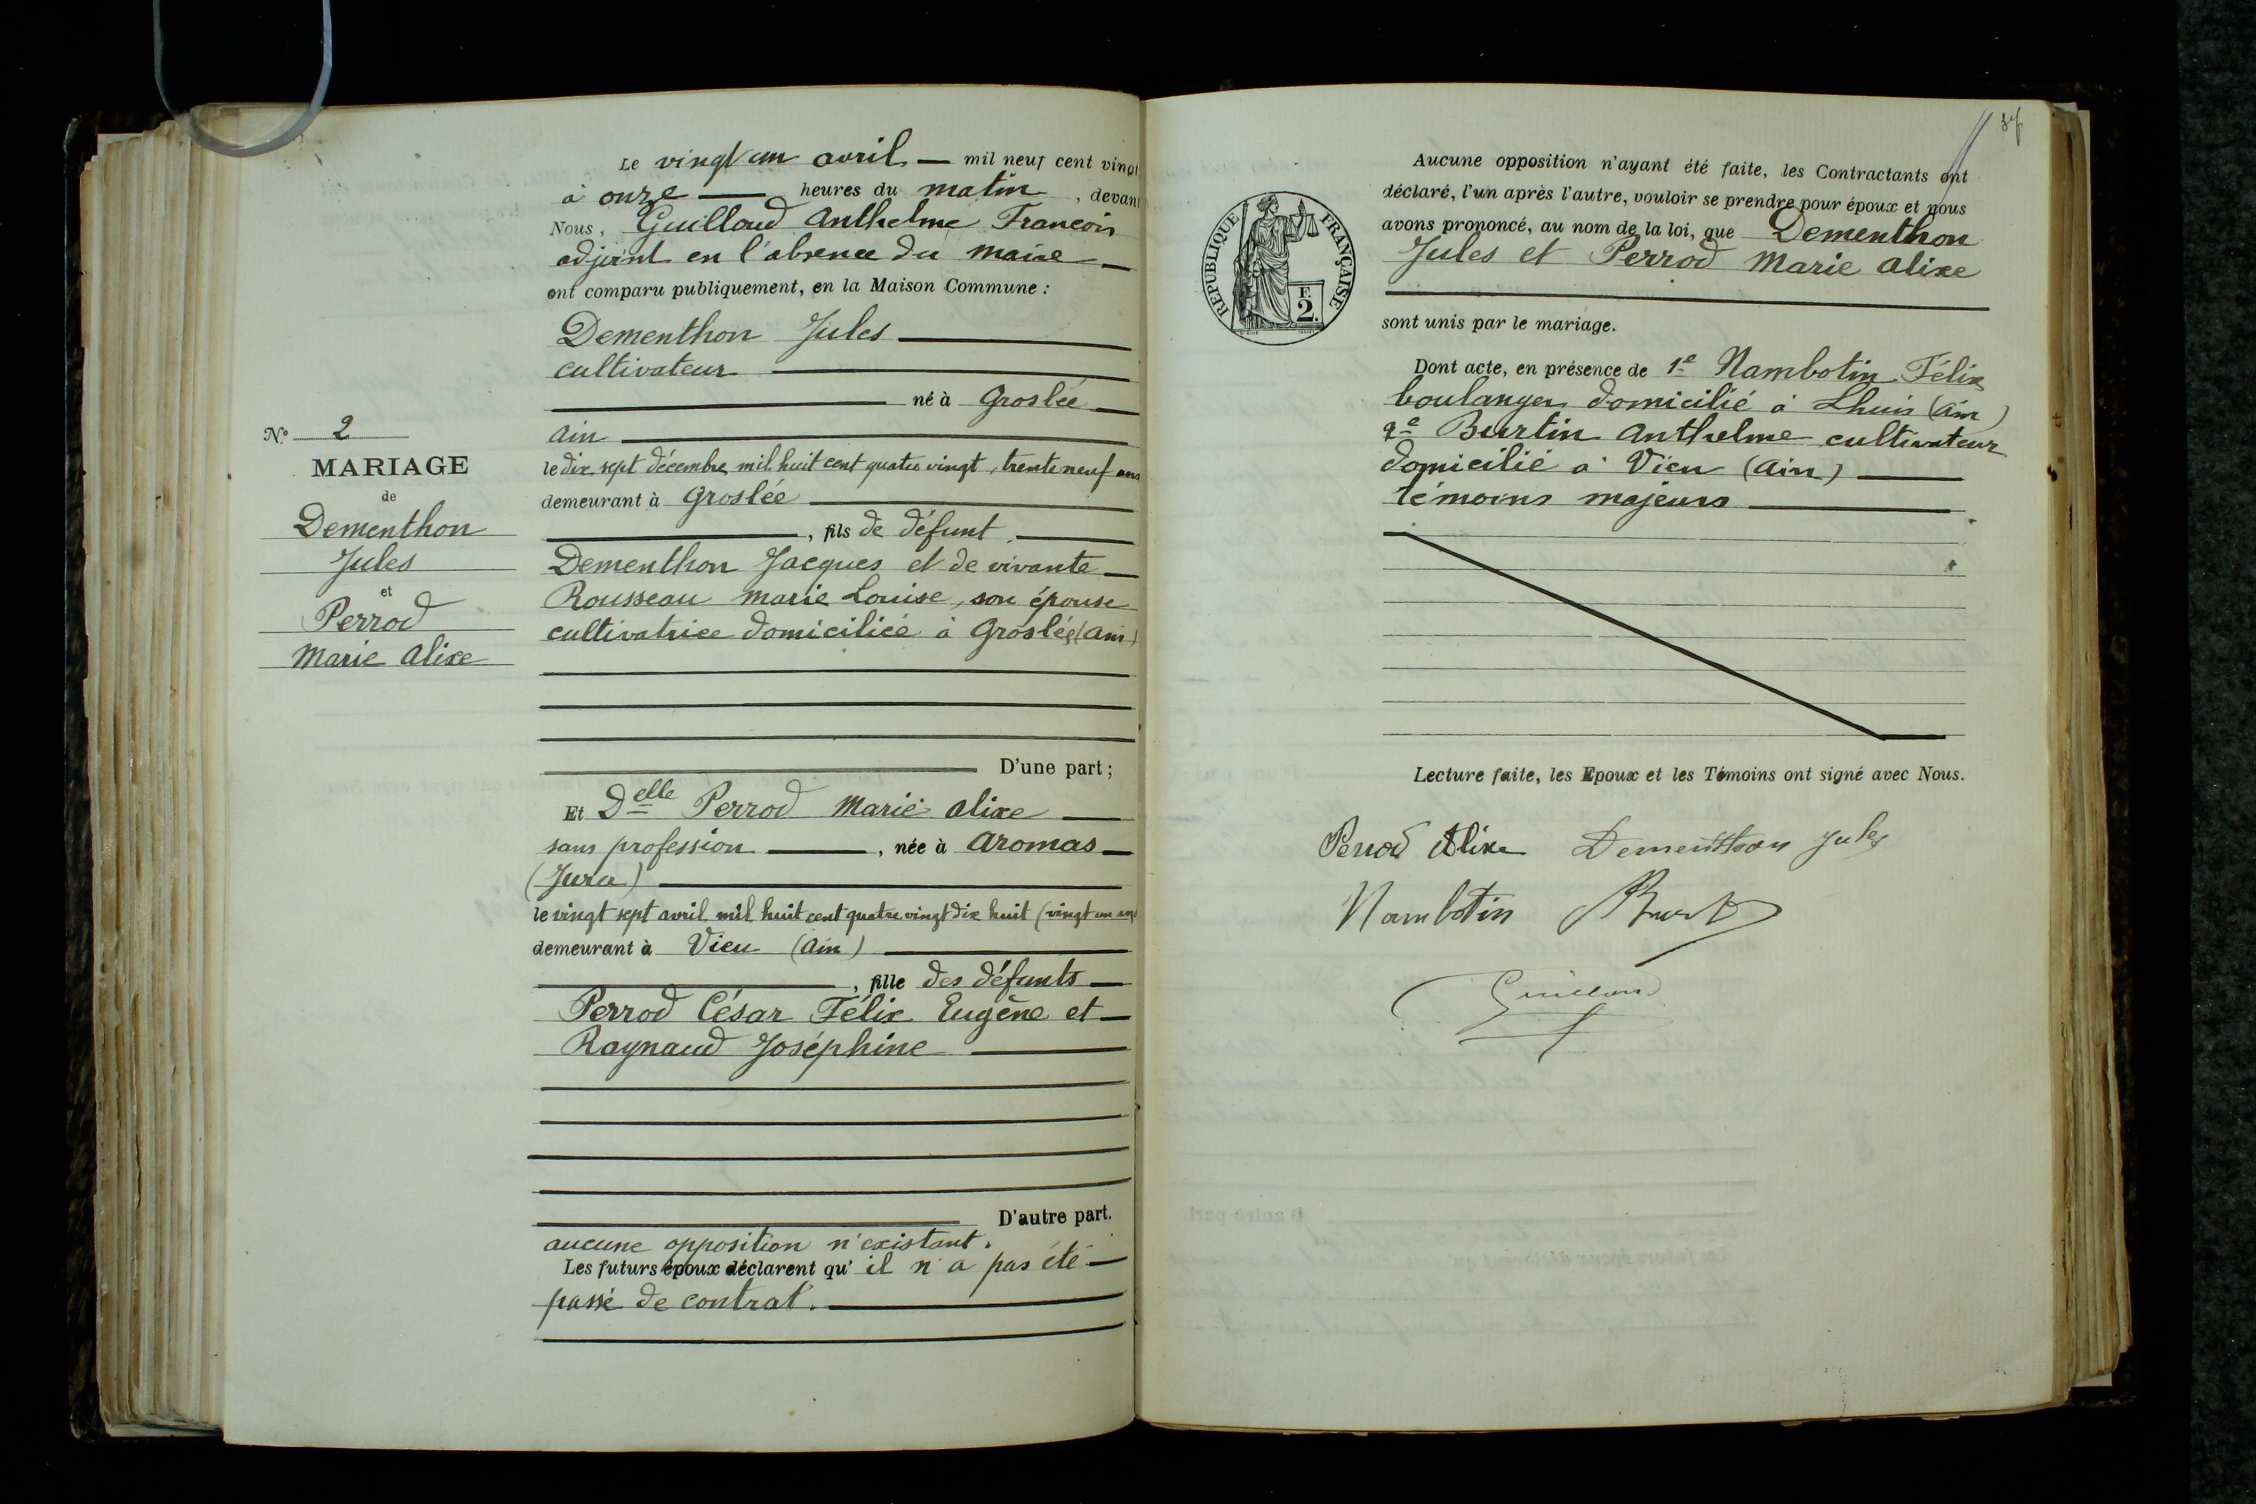 Le vingt un avril — mil neuf cent vingt
à onze — heures du matin, devant
Nous, Guilloud Anthelme Francois
adjoint en l'absence du maire —
ont comparu publiquement, en la Maison Commune :
Dementhon Jules
cultivateur
né à Groslée
Ain
le dix sept décembre mil huit cent quatre vingt, trente neuf ans
demeurant à Groslée
, fils de défunt
Dementhon Jacques et de vivante
Rousseau Marie Louise, son épouse
cultivatrice domiciliée à Groslée (Ain)
D'une part ;
N° 2
MARIAGE
de
Dementhon
Jules
et
Perrod
Marie Alixe
Et Delle Perrod Marie Alixe
sans profession, née à Aromas
(Jura)
le vingt sept avril mil huit cent quatre vingt dix huit (vingt un ans
demeurant à Vieu (Ain)
, fille des défunts
Perrod César Félix Eugène et
Raynaud Joséphine
D'autre part.
aucune opposition n'existant.
Les futurs époux déclarent qu'il n'a pas été
passé de contrat.
Aucune opposition n'ayant été faite, les Contractants ont
déclaré, l'un après l'autre, vouloir se prendre pour époux et nous
avons prononcé, au nom de la loi, que Dementhon
Jules et Perrod Marie Alixe
RÉPUBLIQUE FRANÇAISE
F.
2.
sont unis par le mariage.
Dont acte, en présence de 1e Nambotin Félix
boulanger domicilié à Lhuis (Ain)
2e Burtin Anthelme cultivateur
domicilié à Vieu (Ain)
témoins majeurs
Lecture faite, les Epoux et les Témoins ont signé avec Nous.
Perrod Alixe Dementhon Jules
Nambotin
Guilloud